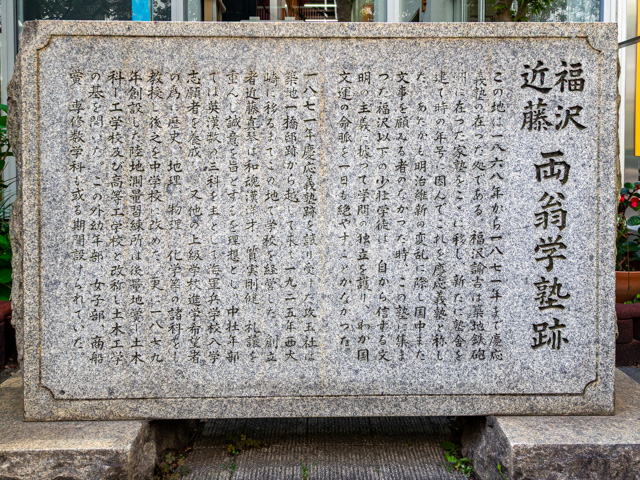 福沢
近藤
両翁学塾跡
この地は一八六八年から一八七一年まで慶応
義塾の在った処である。福沢諭吉は築地鉄砲
洲に在った家塾をここに移し、新たに塾舎を
建て時の年号に因んでこれを慶応義塾と称し
た。あたかも明治維新の変乱に際し国中また
文事を顧みる者のなかった時、この塾に集ま
つた福沢以下の少壮学徒は、自から信ずる文
明の主義に拠って学問の独立を護り、わが国
文運の命脈を一日も絶やすことがなかった。
一八七一年慶応義塾跡を譲り受けた攻玉社は
築地一橋邸跡から越して来、一九二五年西大
崎に移るまでこの地で学校を経営した。創立
者近藤真琴は和魂漢洋才、質実剛健、礼譲を
重んじ誠意を旨とするを理想とし、中社年部
では英漢数の三科を主とし海軍兵学校入学
志願者を養成し、又他の上級学校進学希望者
の為に歴史、地理、物理、化学等の諸科をも
教授し後之を中学校に改めた。更に一八七九
年創設した陸地測量習練所は後量地黌、土木
科、工学校及び高等工学校と改称し土木工学
の基を開いた。この外幼年部、女子部、商船
黌、専修数学科も或る期間設けられていた。